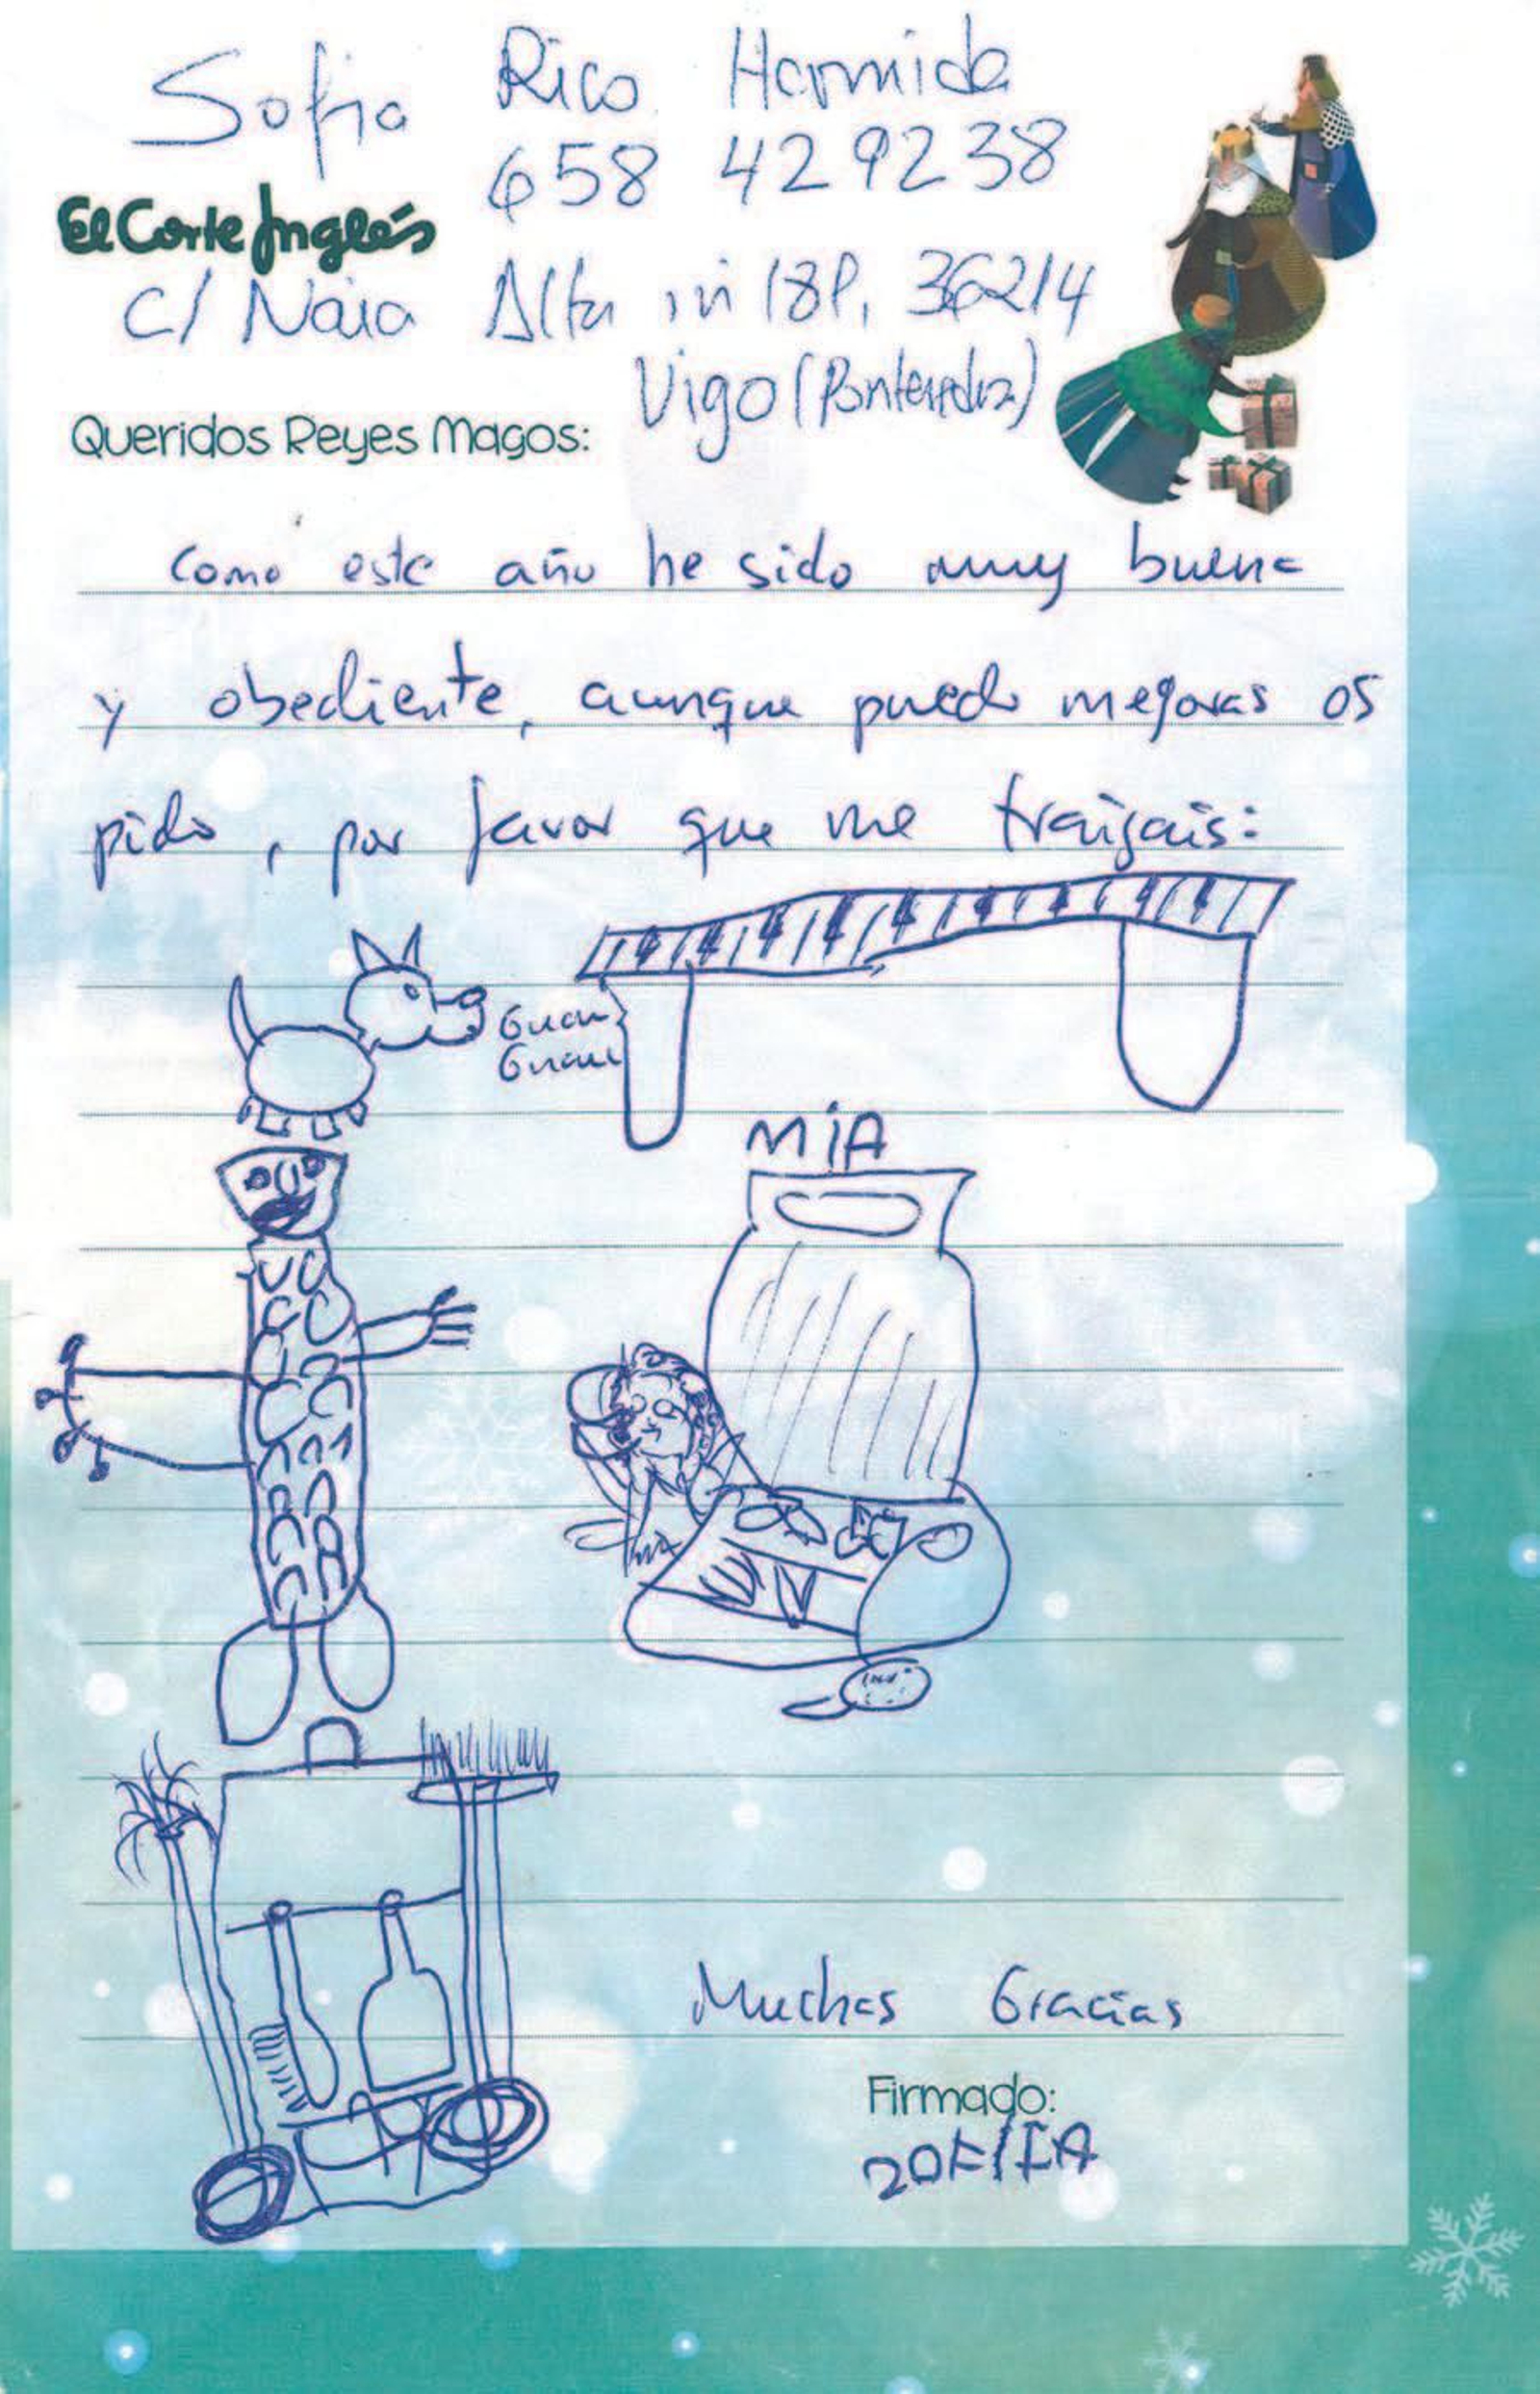 Sofia Rico Hermida
658 429238
El Corte Inglés
C/ Naia Alta 18P, 36214
Vigo (Pontevedra)
Queridos Reyes Magos:
Como este año he sido muy buena
y obediente, aunque puedo mejoras os
pido, por favor que me traigais:
Guau
Guau
MiA
Muchas Gracias
Firmado: